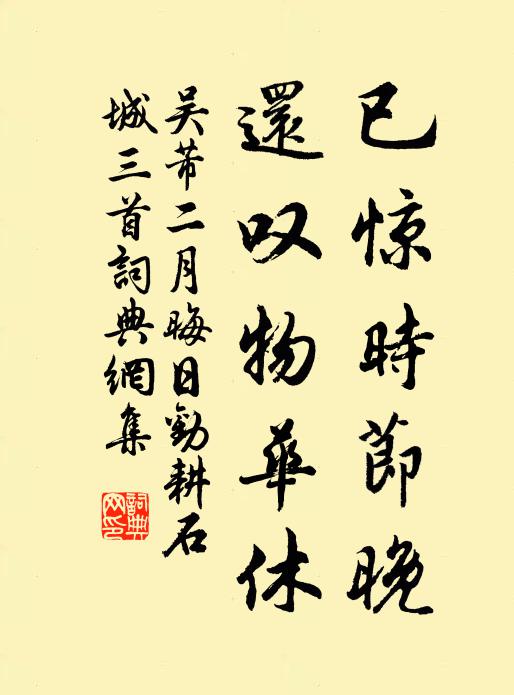 已惊時節晚
還叹物華休
吴芾二月晦日勸耕石
城三首詞典網集
詞典
网印